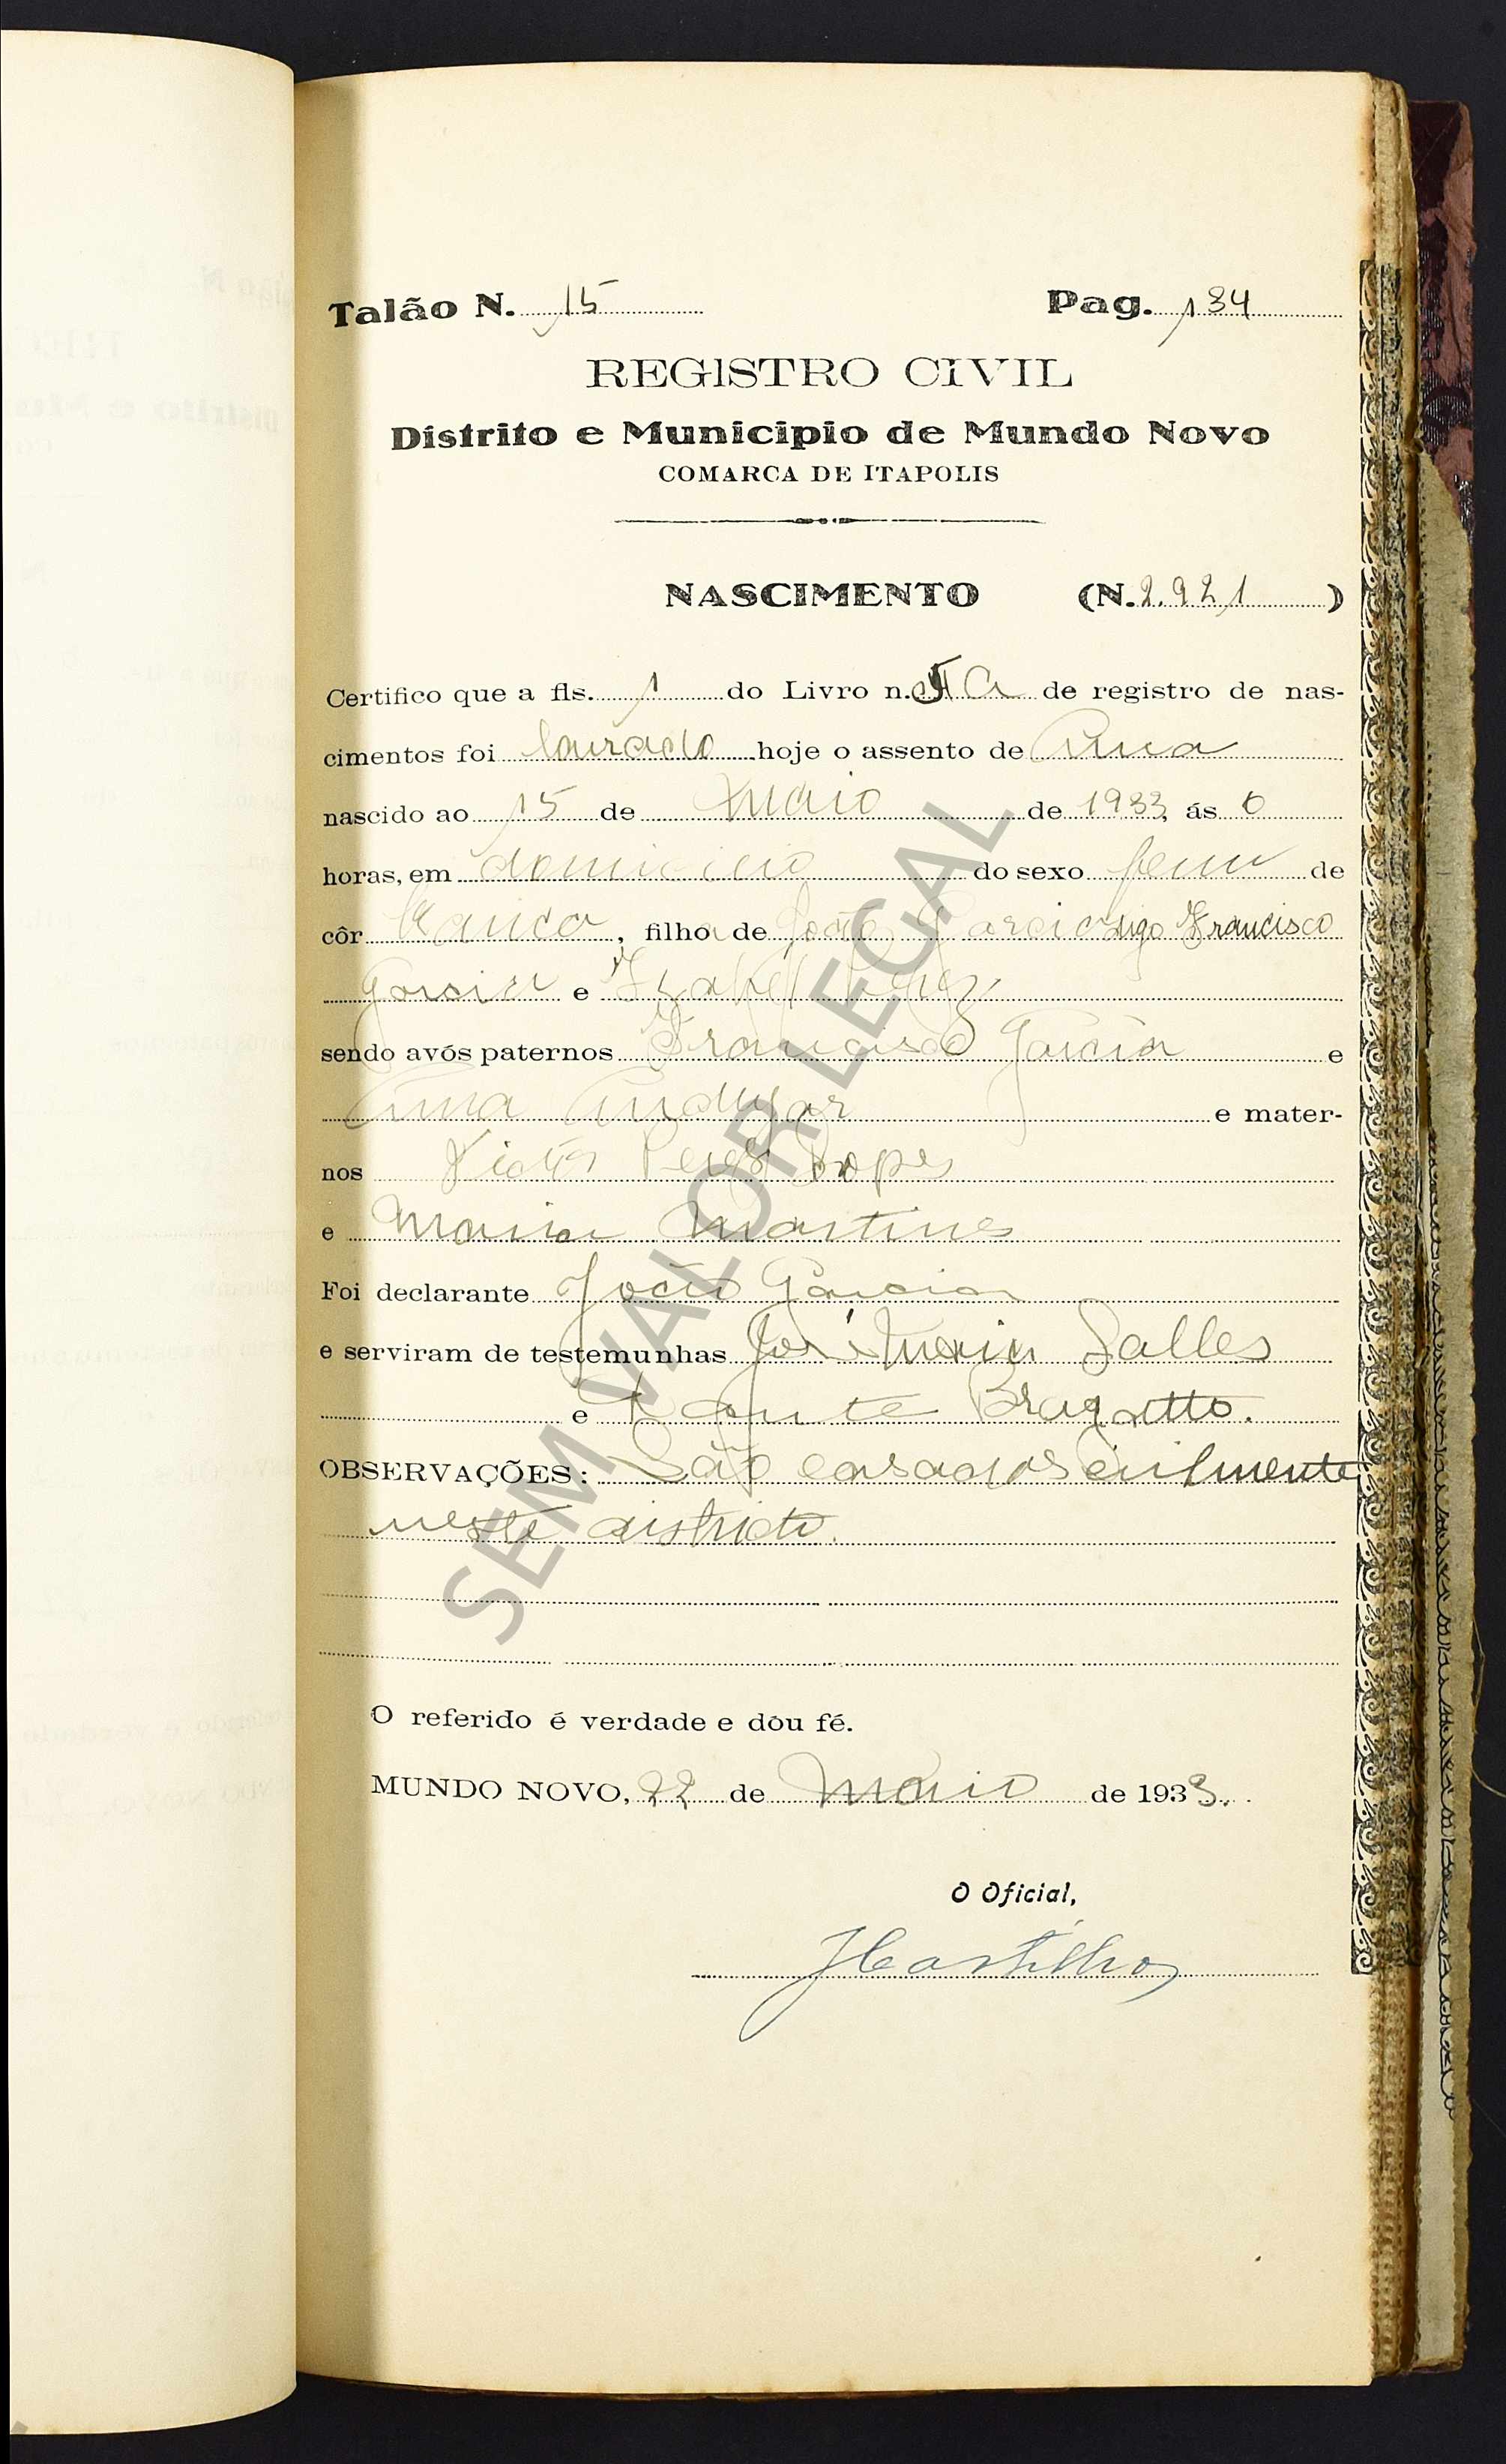 Talão N. 15 Pag. 134
REGISTRO CIVIL
Distrito e Municipio de Mundo Novo
COMARCA DE ITAPOLIS
NASCIMENTO (N. 2.921 )
Certifico que a fls. 1 do Livro n. 5 A de registro de nas-
cimentos foi lavrado hoje o assento de Anna
nascido ao 15 de Maio de 1933, ás 6
horas, em domicilio do sexo fem de
côr branca, filha de João Garcia digo Francisco
Garcia e Izabel Perez
sendo avós paternos Francisco Garcia e
Anna Andujar e mater-
nos Victor Peres Lopes
e Maria Martines
Foi declarante João Garcia
e serviram de testemunhas José Maria Salles
e Dante Bragatto.
OBSERVAÇÕES: São casados civilmente
neste districto.
O referido é verdade e dou fé.
MUNDO NOVO, 22 de Maio de 1933.
O Oficial,
JCastilho
SEM VALOR LEGAL